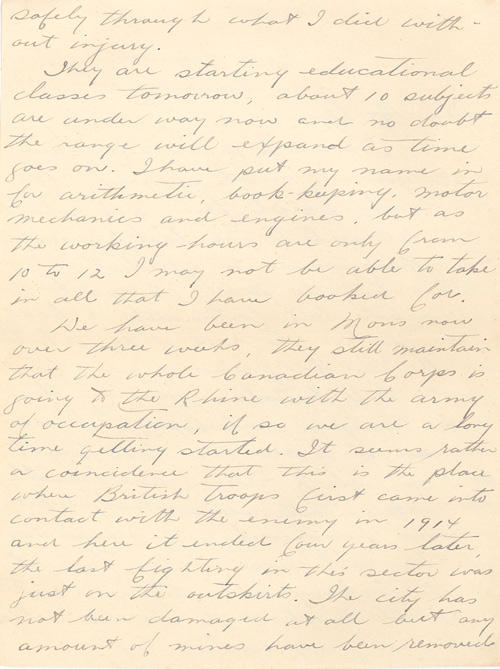 safely through what I did with-
out injury.
They are starting educational
classes tomorrow, about 10 subjects
are under way now and no doubt
the range will expand as time
goes on. I have put my name in
for arithmetic, book-keeping, motor
mechanics and engines, but as
the working-hours are only from
10 to 12 I may not be able to take
in all that I have booked for.
We have been in Mons now
over three weeks, they still maintain
that the whole Canadian Corps is
going to the Rhine with the army
of occupation, if so we are a long
time getting started. It seems rather
a coincidence that this is the place
where British troops first came into
contact with the enemy in 1914
and here it ended four years later,
the last fighting in this sector was
just on the outskirts. The city has
not been damaged at all but any
amount of mines have been removed